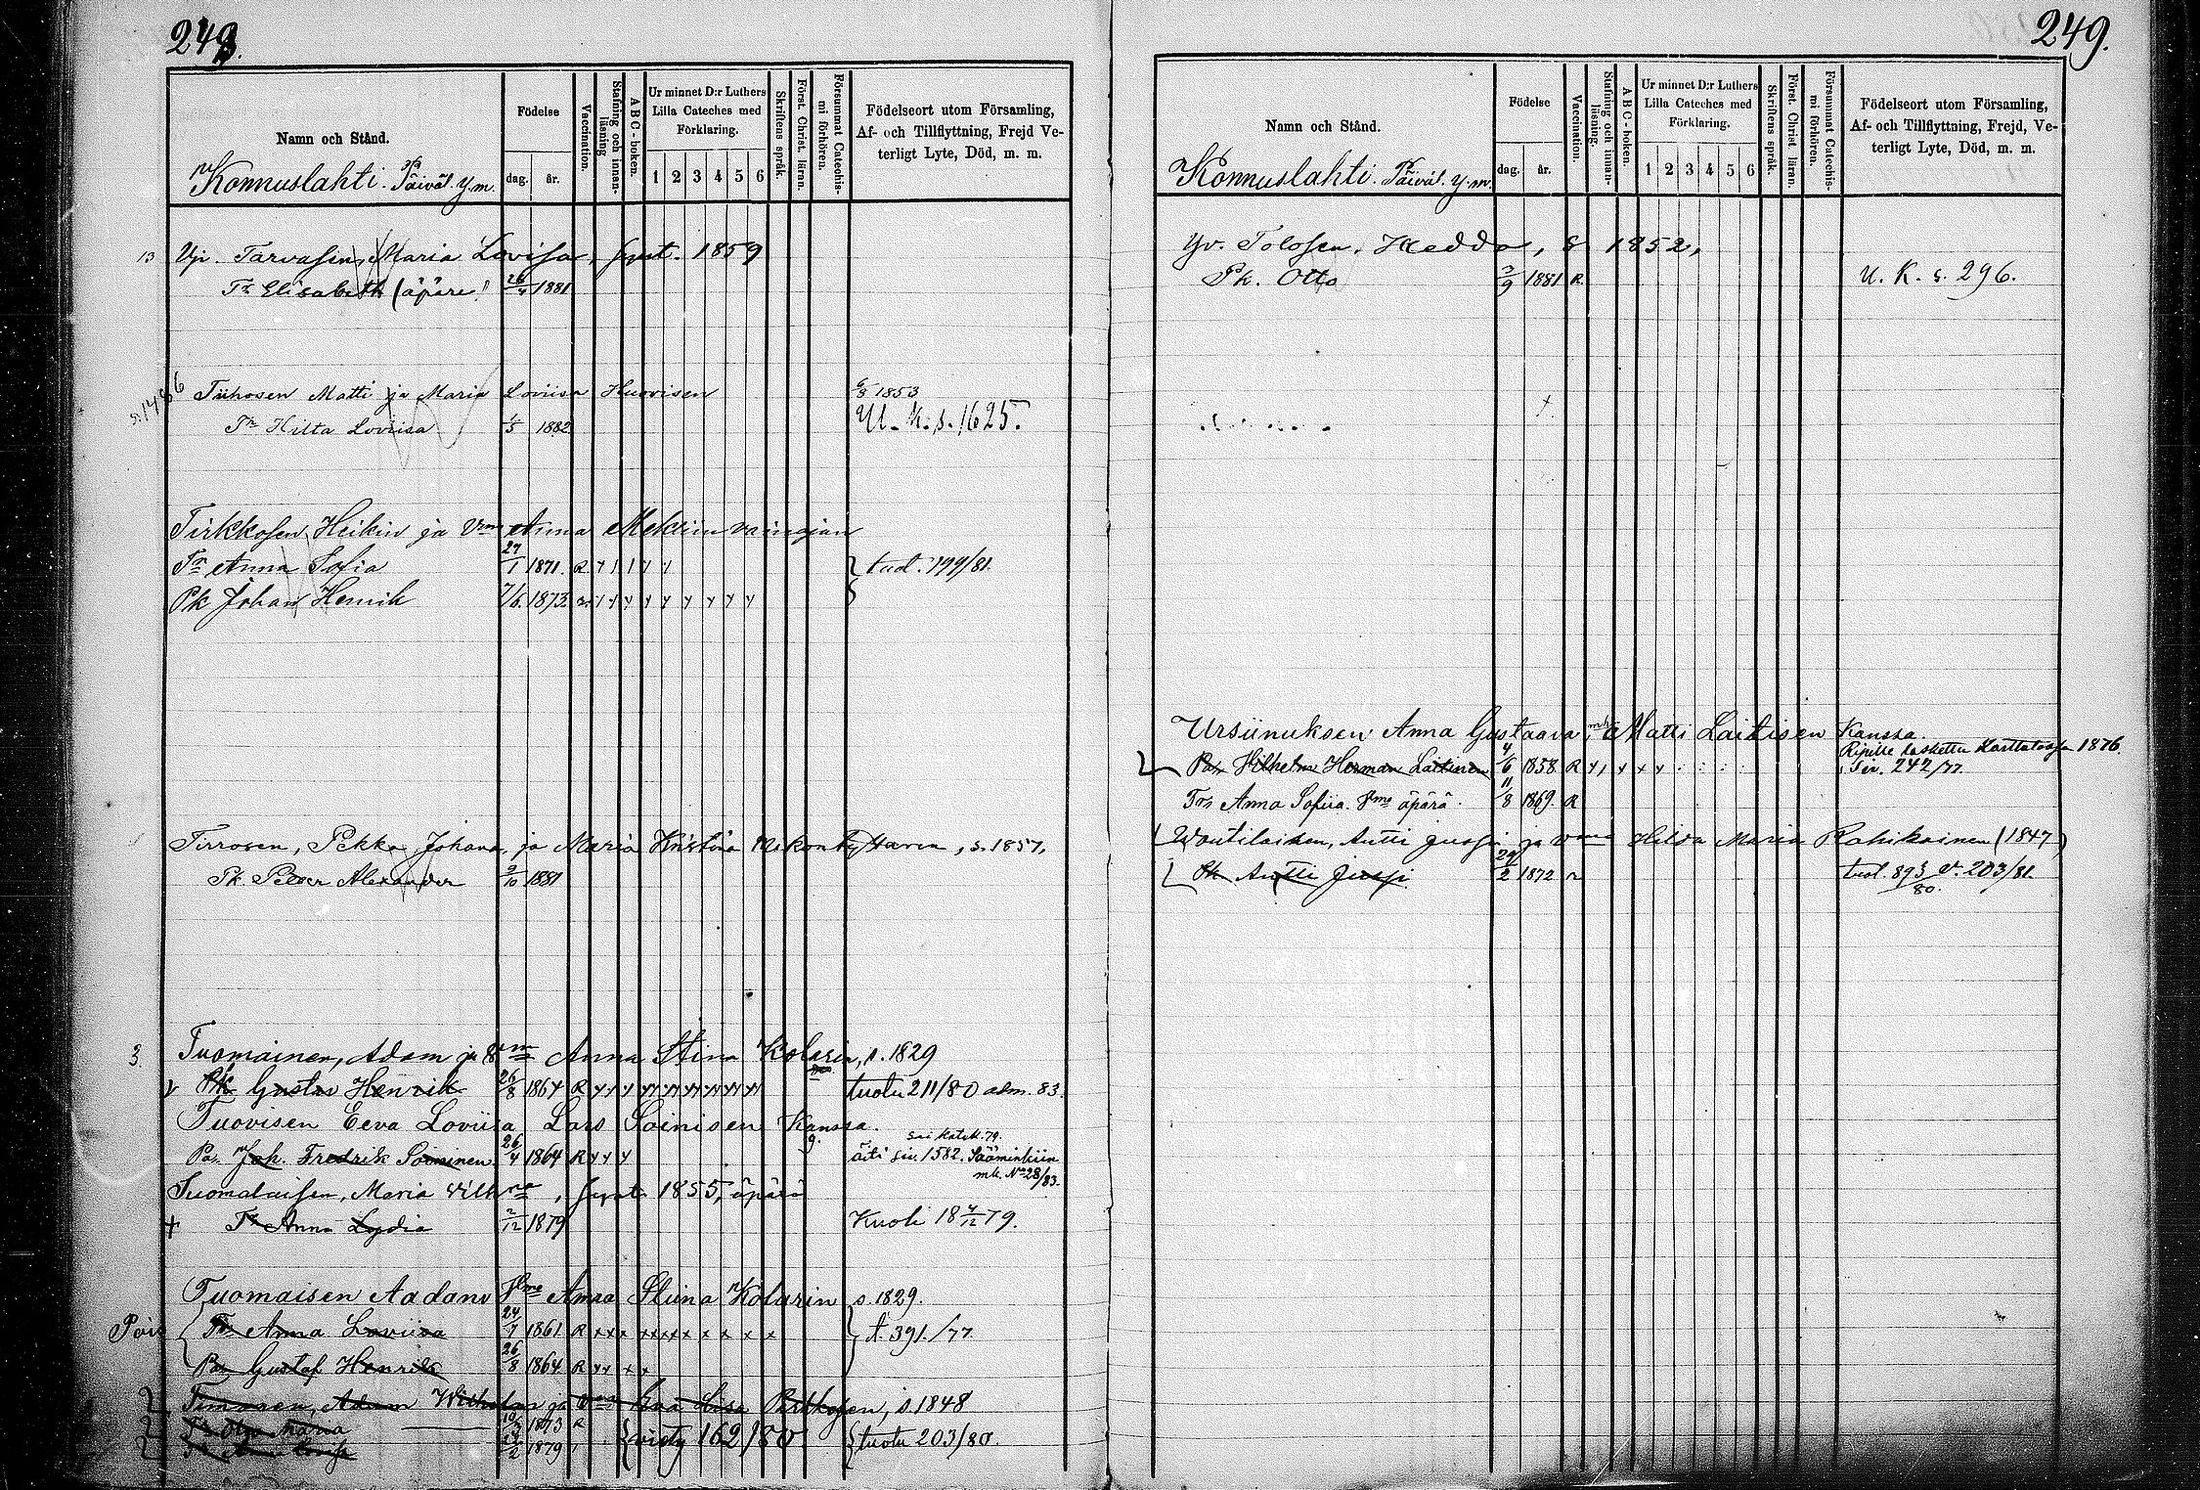 248.
Namn och Stånd.
Födelse
dag.
år.
Vaccination.
Stafning och innanläsning
A B C-boken.
Ur minnet D:r Luthers
Lilla Cateches med
Förklaring.
1 2 3 4 5 6
Skriftens språk.
Först. Christ. läran.
Försummat Catechismi förhören.
Födelseort utom Församling,
Af- och Tillflyttning, Frejd Ve-
terligt Lyte, Död, m. m.
Konnuslahti. Päiväl. y. m.
13 Vpi. Tarvasen, Maria Lovisa, synt. 1859
Tr Elisabeth (äpäre) 26/4 1881
Tiihosen Matti ja Maria Loviisa Huovisen 6/8 1853
Tr Hilta Loviisa 1/5 1882 U. K. s. 1625.
Tirkkosen, Heikin ja Vmn Anna
Tr Anna Sofia 27/1 1871. R tuol. 199/81.
Pk Johan Henrik 7/6 1873.
Tirrosen, Pekka Johana, ja Maria Kristina s. 1857.
Pk. Peter Alexander 3/10 1881
3. Tuomainen, Adam ja Anna Stina Kolarin, s. 1829
Pk Gustav Henrik 26/8 1864 R tuotu 211/80 adm. 83.
Tuovisen Eeva Loviisa Lars Soinisen Kanssa.
Po. Joh. Fredrik Soininen. 26/4 1864 R äiti siv. 1582. Sääminkiin
mk. No 28/83.
Tuomalaisen, Maria Vilh , synt. 1855, äpärä
+ Tr Anna Lydia 2/12 1879 Kuoli 18 4/12 79.
Tuomaisen Aadam Anna Stiina Kolarin s. 1829.
Pois Tr Anna Loviisa 24/7 1861 R t. 391./77
Po. Gustaf Henrik 26/8 1864 R
Timosen, Adam Wilhelm ja Eva Lisa Parkkosen, s. 1848
Maria 1873 R
1879 viety 162/80 tuotu 203/80.
249.
Namn och Stånd.
Födelse
dag.
år.
Vaccination.
Stafning och innanläsning.
A B C-boken.
Ur minnet D:r Luthers
Lilla Cateches med
Förklaring.
1 2 3 4 5 6
Skriftens språk.
Först. Christ läran.
Försummat Catechismi förhören.
Födelseort utom Församling,
Af- och Tillflyttning, Frejd, Ve-
terligt Lyte, Död, m. m.
Konnuslahti. Päiväl. y. m.
Yv. Tolosen, Hedda, s 1852,
Pk. Otto 2/9 1881 R. U. K. s. 296.
Ursiinuksen Anna Gustaava Matti Laitisen Kanssa.
Ripille laskettu Karttulassa 1876.
Po. Vilhelm Herman Laitinen 4/6 1858 R Siv. 242/77.
Tr. Anna Sofiia. äpärä. 11/8 1869. R
Woutilaisen, Antti Jussi ja Hilda Maria Rahikainen (1847)
Pk Antti Jussi. 29/2 1872 tuol. 893/80. v. 203/81.